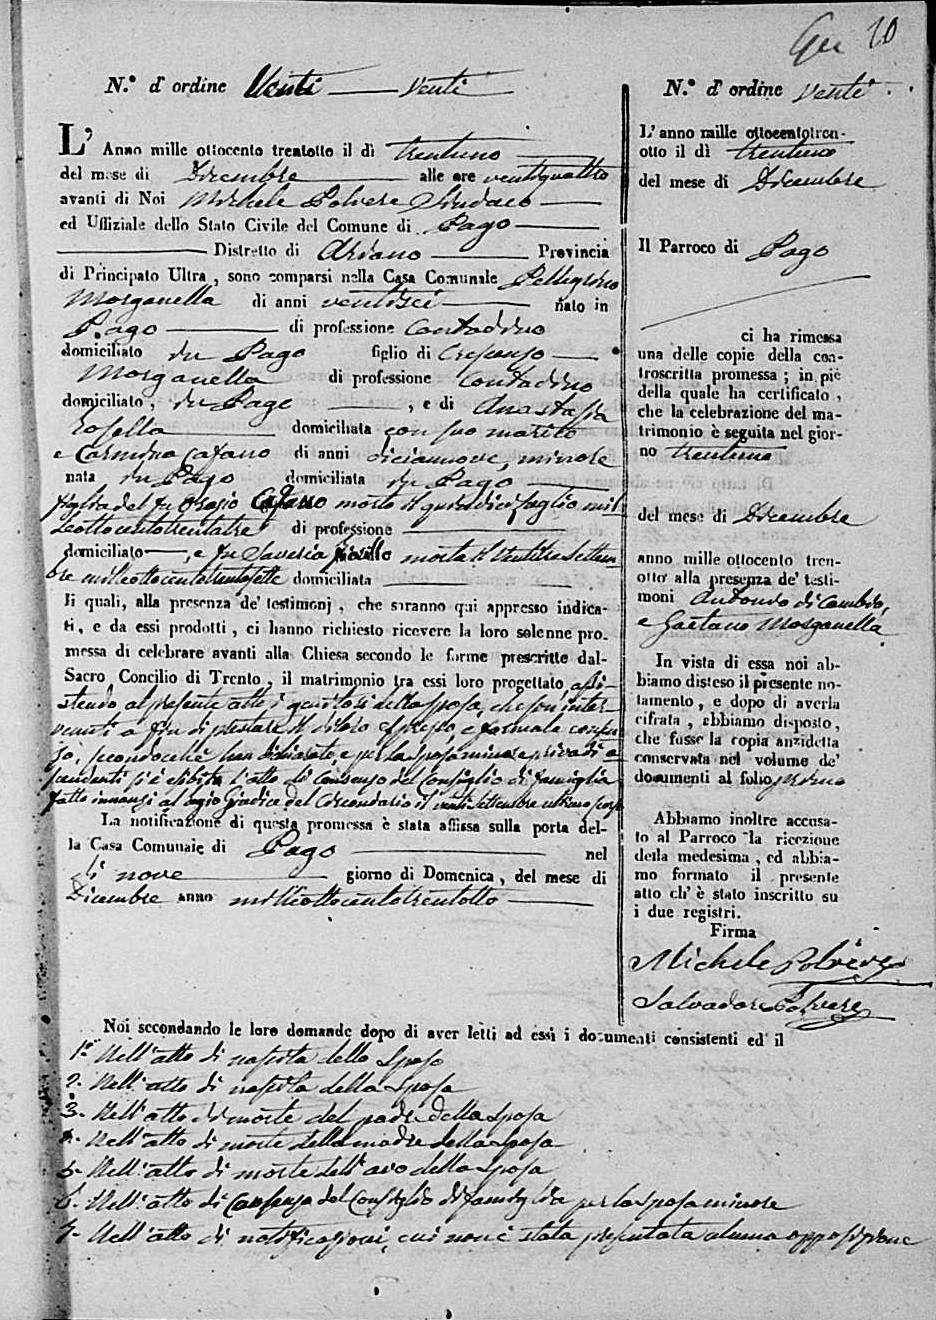 20
N.º d' ordine Venti venti
L' Anno mille ottocento trentotto il dì trentuno
del mese di Dicembre alle ore ventiquattro
avanti di Noi Michele Polvere Sindaco
ed Uffiziale dello Stato Civile del Comune di Pago
Distretto di Ariano Provincia
di Principato Ultra, sono comparsi nella Casa Comunale Pellegrino
Morganella di anni ventisei nato in
Pago di professione contadino
domiciliato in Pago figlio di Crescenzo
Morganella di professione contadino
domiciliato, in Pago, e di Anastasia
Rosella domiciliata con suo marito
e Carmina Cafaro di anni diciannove, minore
nata in Pago domiciliata in Pago
figlia del fu Orazio Cafaro morto il quindici luglio mil
leottocentotrentatre di professione
domiciliato, e fu Saveria morta il ventitre Settem
bre milleottocentotrentasette domiciliata
Ii quali, alla presenza de' testimonj, che saranno qui appresso indica-
ti, e da essi prodotti, ci hanno richiesto ricevere la loro solenne pro-
messa di celebrare avanti alla Chiesa secondo le forme prescritte dal-
Sacro Concilio di Trento, il matrimonio tra essi loro progettato, assi-
stendo al presente atto i genitori dello sposo, che son inter-
venuti a fin di prestare il di loro espresso, e formale consen
so, secondocchè han dichiarato, e per la sposa minore, e priva di a
scendenti si è esibito l'atto di consenso del Consiglio di famiglia
fatto innanzi al Regio Giudice del Circondario il venti Settembre ultimo
La notificazione di questa promessa è stata affissa sulla porta del-
la Casa Comunale di Pago nel
dì nove giorno di Domenica, del mese di
Dicembre anno milleottocentotrentotto
N.º d' ordine venti
L' anno mille ottocentotren-
otto il dì trentuno
del mese di Dicembre
Il Parroco di Pago
ci ha rimessa
una delle copie della con-
troscritta promessa; in piè
della quale ha certificato,
che la celebrazione del ma-
trimonio è seguita nel gior-
no trentuno
del mese di Dicembre
anno mille ottocento tren-
otto alla presenza de' testi-
moni Antonio di Cambio,
e Gaetano Morganella
In vista di essa noi ab-
biamo disteso il presente no-
tamento, e dopo di averla
cifrata, abbiamo disposto,
che fusse la copia anzidetta
conservata nel volume de'
documenti al folio primo
Abbiamo inoltre accusa-
to al Parroco la ricezione
della medesima, ed abbia-
mo formato il presente
atto ch' è stato inscritto su
i due registri.
Firma
Michele Polvere
Salvadore Polvere
Noi secondando le loro domande dopo di aver letti ad essi i documenti consistenti ed il
1.º Nell'atto di nascita dello sposo
2. Nell'atto di nascita della sposa
3. Nell'atto di morte del padre della sposa
4. Nell'atto di morte della madre della sposa
5. Nell'atto di morte dell'avo della sposa
6. Nell'atto di Consenso del Consiglio di famiglia per la sposa minore
7. Nell'atto di notificazioni, cui non è stata presentata alcuna opposizione